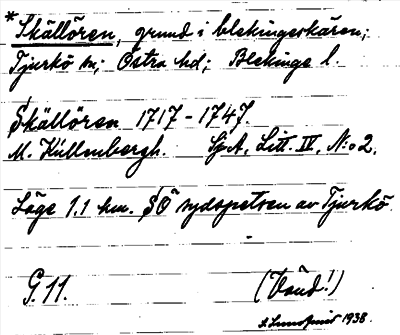 *Skällören, grund i blekingeskären;
Tjurkö sn; Östra hd; Blekinge l.
Skällören 1717-1747.
M. Küllenbergh. SjA, Litt. IV, N:o 2.
Läge 1.1 km. SÖ sydspetsen av Tjurkö
G. 11. (Vänd!)
1938